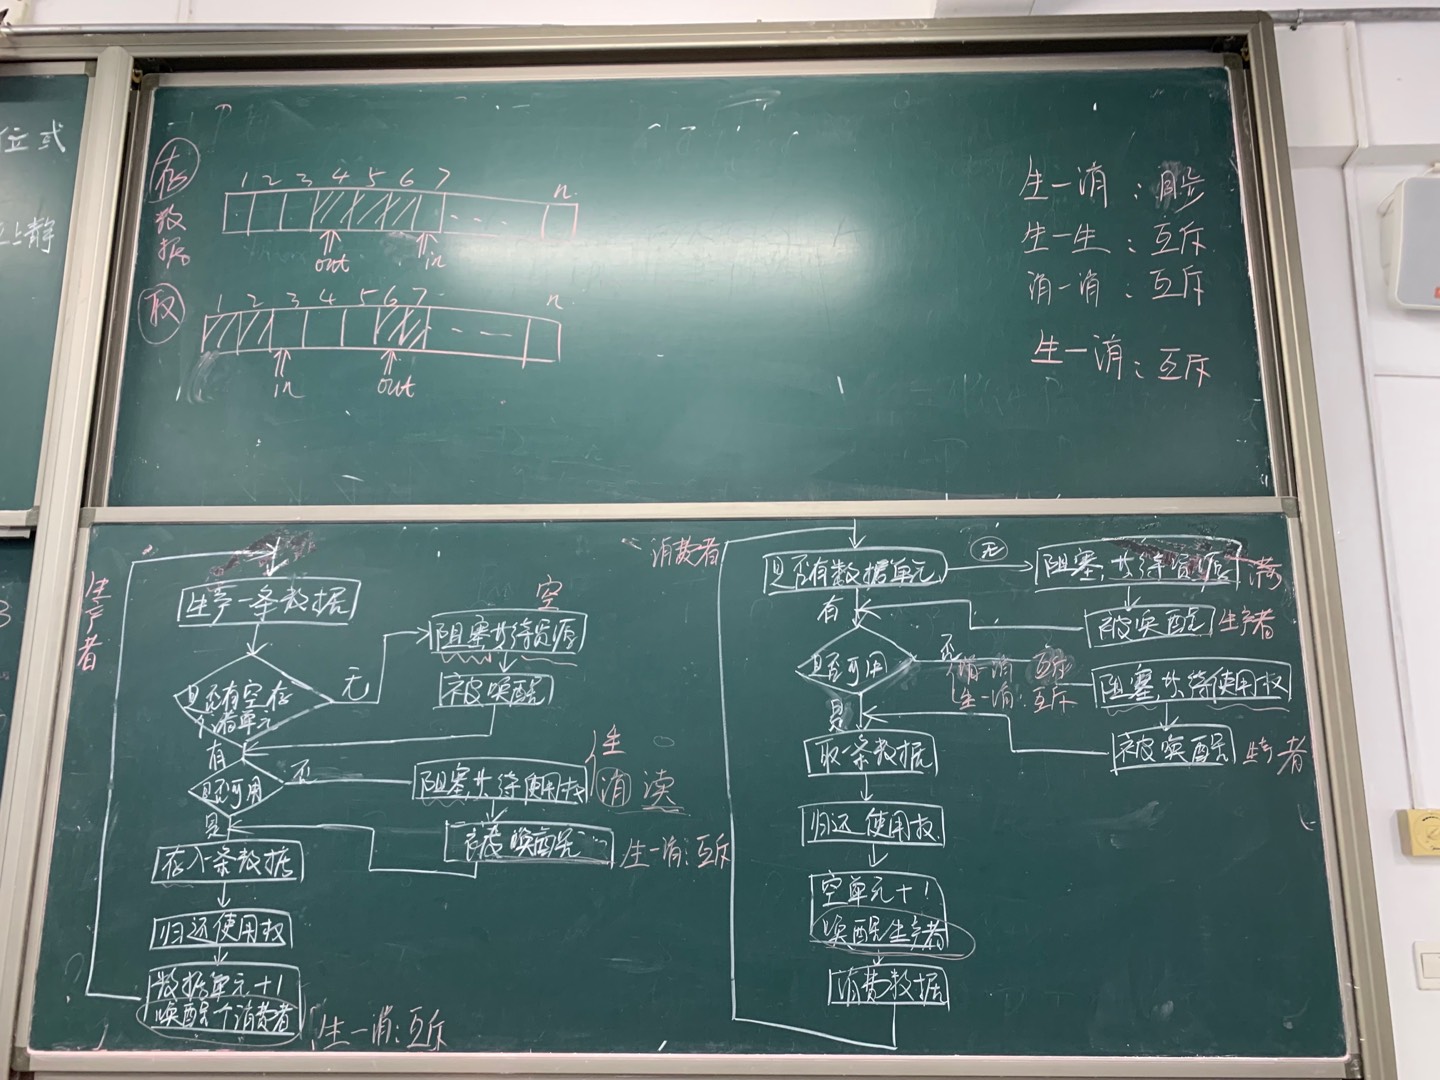 位式
上静
存
数据
1 2 3 4 5 6 7 n
out in
取
1 2 3 4 5 6 7 n
in out
生一消:同步
生一生:互斥
消一消:互斥
生一消:互斥
生产者
生产一条数据
是否有空存
储单元
无
空
阻塞,等待资源
被唤醒
有
是否可用
否
阻塞,等待使用权
生
消 读
被唤醒
生一消:互斥
是
存入一条数据
归还使用权
数据单元+1
唤醒一个消费者
生一消:互斥
消费者
是否有数据单元
无
阻塞,等待资源
被唤醒
生产者
有
是否可用
否
消一消:互斥
生一消:互斥
阻塞,等待使用权
被唤醒
生产者
是
取一条数据
归还使用权
空单元+1
唤醒生产者
消费数据